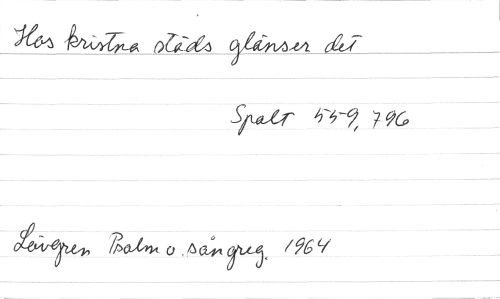 Hos kristna städs glänser det
Spalt 559, 796
Lövgren Psalm o. sångreg. 1964